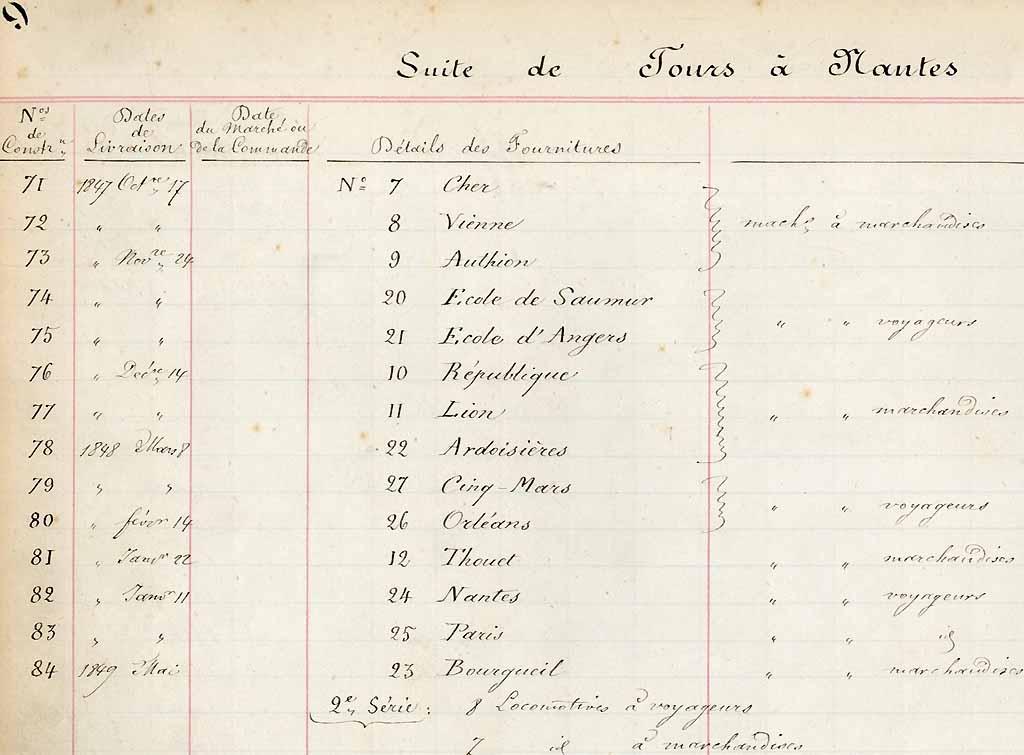 9
Suite de Tours à Nantes
Nos de Constr.n Dates de Livraison Date du Marché ou de la Commande Détails des Fournitures
71 1847 Octre 17 No 7 Cher
72 " " 8 Vienne mach. à marchandises
73 " Novre 24 9 Authion
74 " " 20 Ecole de Saumur
" " voyageurs
75 " " 21 Ecole d'Angers
76 " Décre 14 10 République
77 " " 11 Lion " " marchandises
78 1848 Mars 8 22 Ardoisières
79 " " 27 Cinq-Mars
" " voyageurs
80 " févr 14 26 Orléans
81 " Janvr 22 12 Thouet " " marchandises
82 " Janvr 11 24 Nantes " " voyageurs
83 " " 25 Paris " " id
84 1849 Mai 23 Bourgueil " " marchandises
2e Série : 8 Locomotives à voyageurs
7 id à marchandises